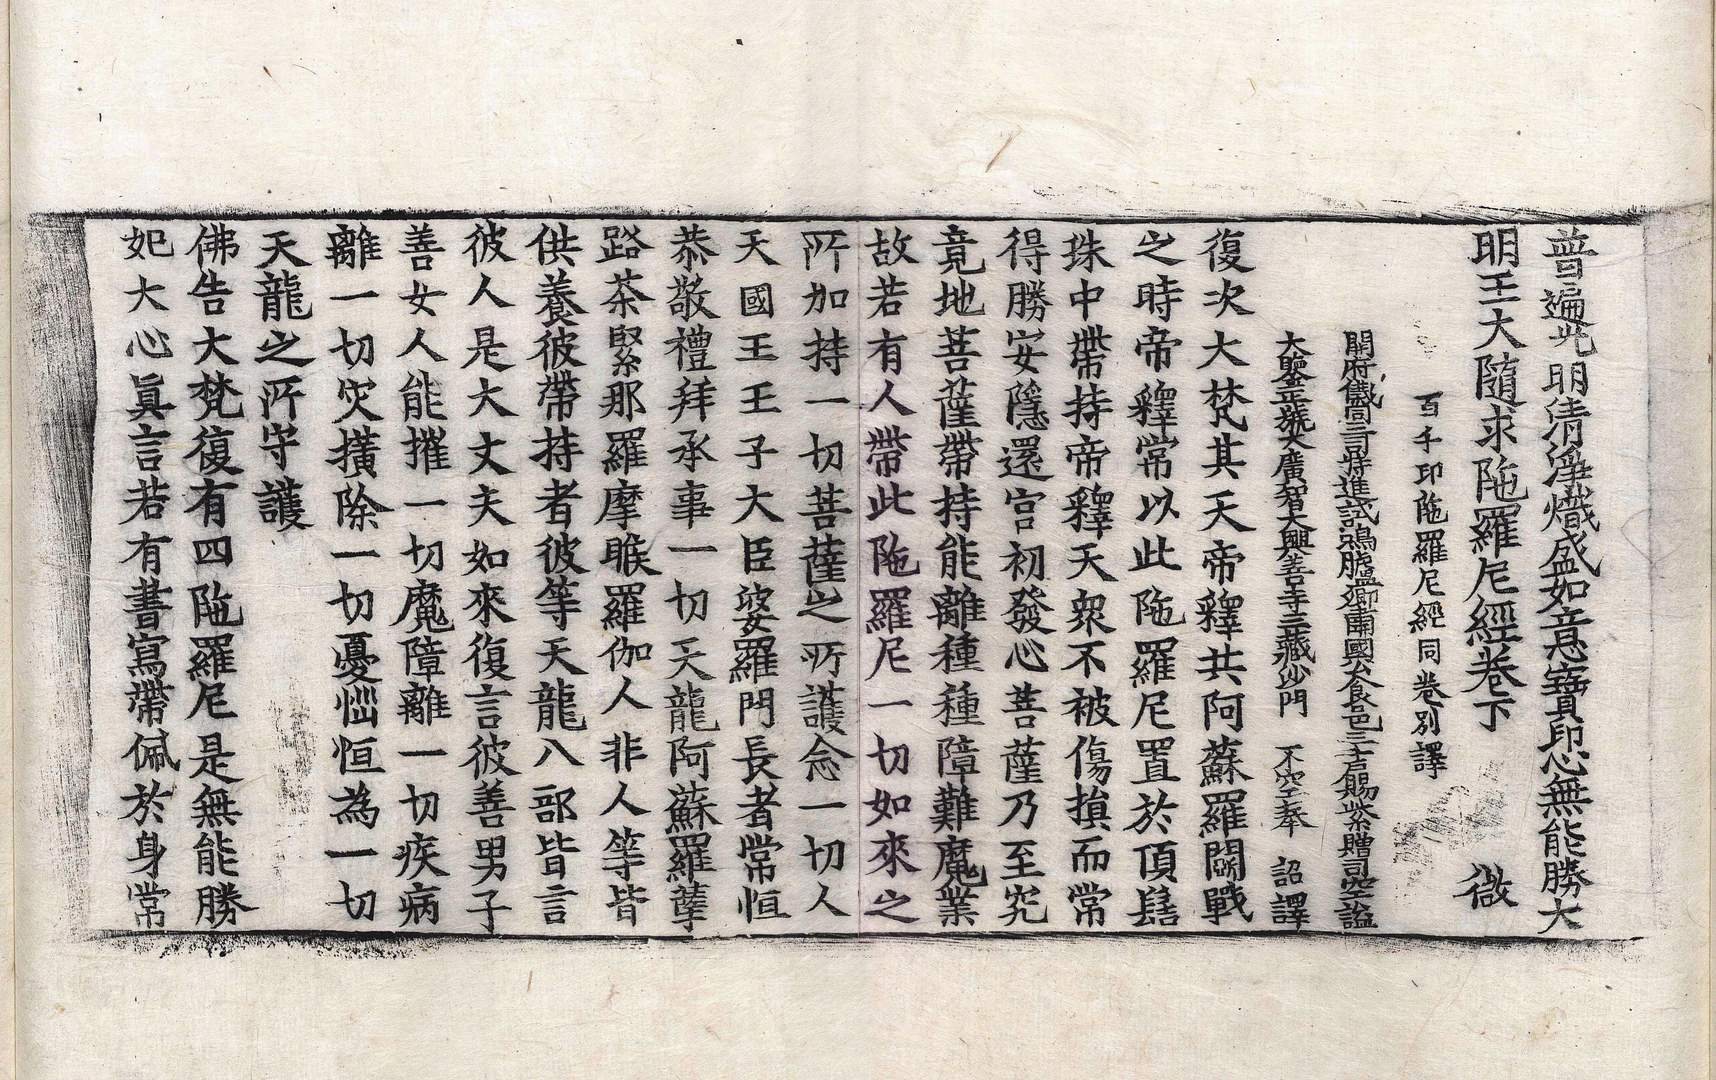 普遍光明清淨熾盛如意寶印心無能勝大
明王大隨求陁羅尼經卷下 微
百千印陁羅尼經同卷別譯
開府儀同三司特進試鴻臚卿肅國公食邑三千戶賜紫贈司空謚
大鑒正號大廣智大興善寺三藏沙門 不空奉 詔譯
復次大梵其天帝釋共阿蘇羅鬪戰
之時帝釋常以此陁羅尼置於頂髻
珠中帶持帝釋天衆不被傷損而常
得勝安隱還宮初發心菩薩乃至究
竟地菩薩帶持能離種種障難魔業
故若有人帶此陁羅尼一切如來之
所加持一切菩薩之所護念一切人
天國王王子大臣婆羅門長者常恒
恭敬禮拜承事一切天龍阿蘇羅孽
路茶緊那羅摩睺羅伽人非人等皆
供養彼帶持者彼等天龍八部皆言
彼人是大丈夫如來復言彼善男子
善女人能摧一切魔障離一切疾病
離一切灾擴除一切憂惱恒為一切
天龍之所守護
佛告大梵復有四陁羅尼是無能勝
妃大心眞言若有書寫帶佩於身常